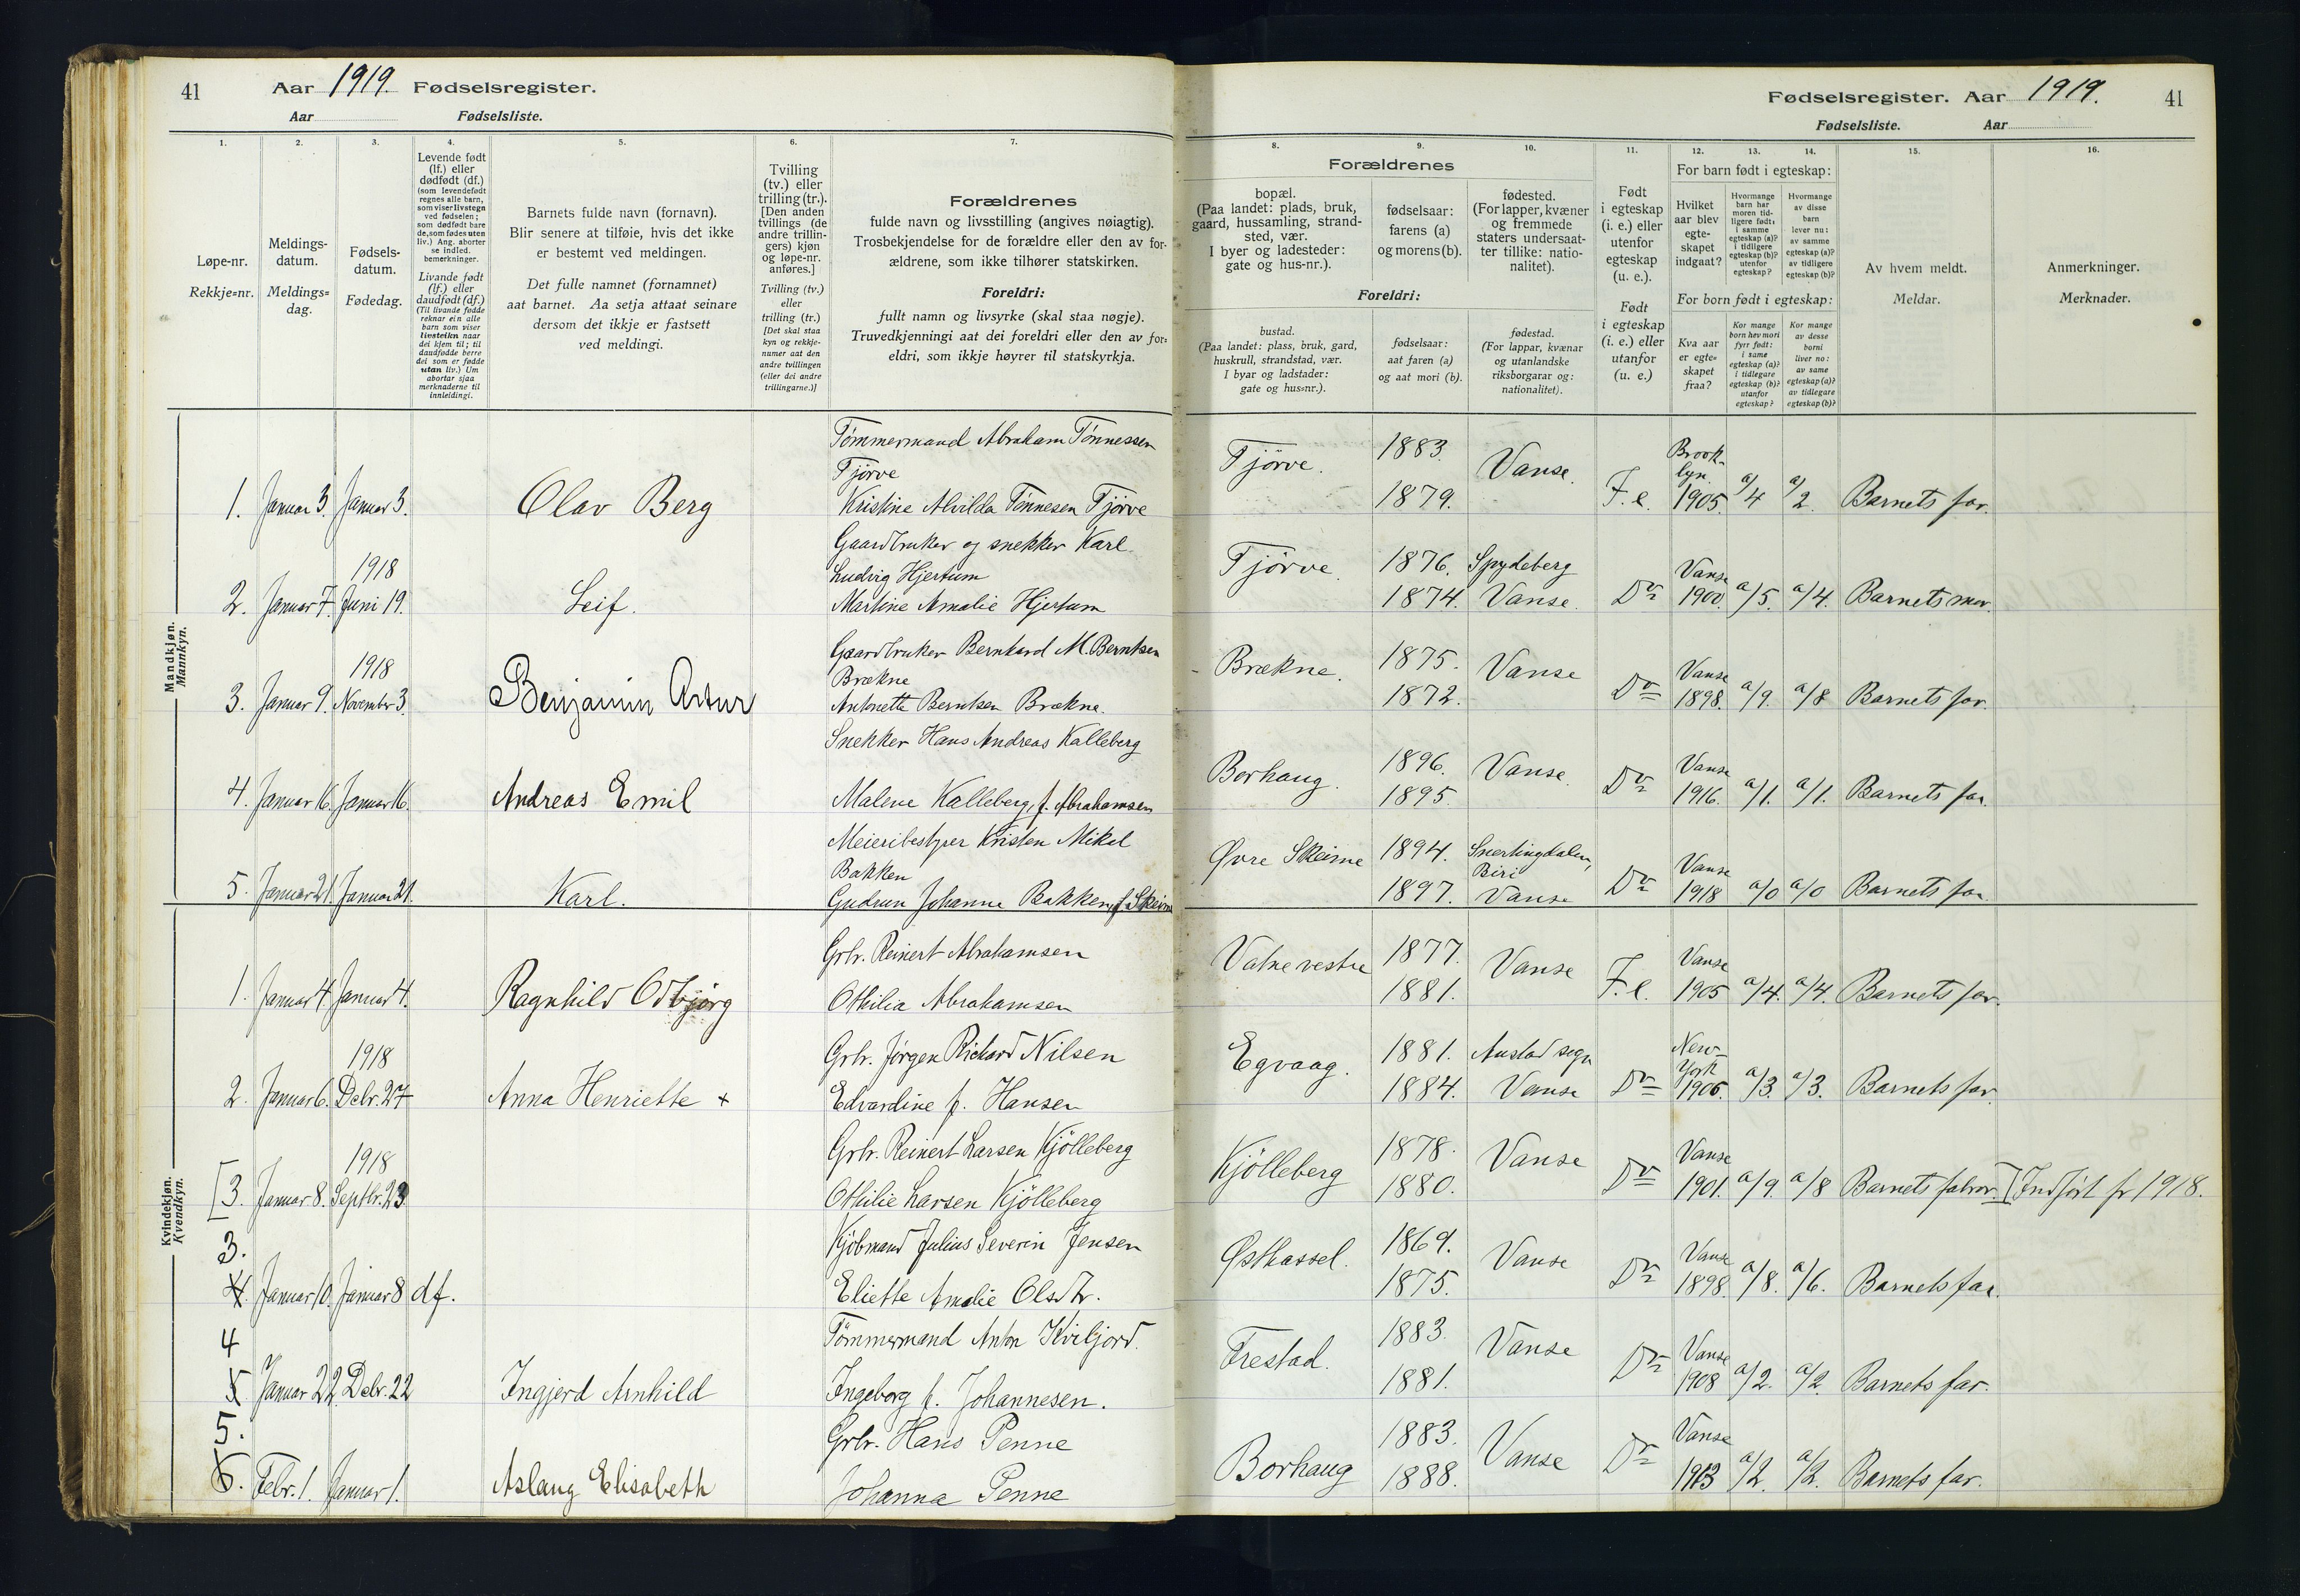 41
Aar 1919. Fødselsregister.
Aar Fødselsliste.
1.
Løpe-nr.
Rekkje=nr.
2.
Meldings-
datum.
Meldings=
dag.
3.
Fødsels-
datum.
Fødedag.
4.
Levende født
(lf.) eller
dødfødt (df.)
(som levendefødt
regnes alle barn,
som viser livstegn
ved fødselen;
som dødfødt bare
de, som fødes uten
liv.) Ang. aborter
se indled.
bemerkninger.
Livande født
(lf.) eller
daudfødt (df.)
(Til livande fødde
reknar ein alle
barn som viser
livsteikn naar
dei kjem til; til
daudfødde berre
dei som er fødde
utan liv.) Um
abortar sjaa
merknaderne til
innleidingi.
5.
Barnets fulde navn (fornavn).
Blir senere at tilføie, hvis det ikke
er bestemt ved meldingen.
Det fulle namnet (fornamnet)
aat barnet. Aa setja attaat seinare
dersom det ikkje er fastsett
ved meldingi.
6.
Tvilling
(tv.) eller
trilling (tr.).
[Den anden
tvillings (de
andre trillin-
gers) kjøn
og løpe-nr.
anføres.]
Tvilling (tv.)
eller
trilling (tr.)
[Det skal staa
kyn og rekkje-
numer aat den
andre tvillingen
(eller dei andre
trillingarne.)]
7.
Forældrenes
fulde navn og livsstilling (angives nøiagtig).
Trosbekjendelse for de forældre eller den av for-
ældrene, som ikke tilhører statskirken.
Foreldri:
fullt namn og livsyrke (skal staa nøgje).
Truvedkjenningi aat dei foreldri eller den av for=
eldri, som ikkje høyrer til statskyrkja.
Fødselsregister. Aar 1919. 41
Fødselsliste. Aar
8.
Forældrenes
bopæl.
(Paa landet: plads, bruk,
gaard, hussamling, strand-
sted, vær.
I byer og ladesteder:
gate og hus-nr.).
Foreldri:
bustad.
(Paa landet: plass, bruk, gard,
huskrull, strandstad, vær.
I byar og ladstader:
gate og hus=nr.).
9.
fødselsaar:
farens (a)
og morens (b).
fødselsaar:
aat faren (a)
og aat mori (b).
10.
fødested.
(For lapper, kvæner
og fremmede
staters undersaat-
ter tillike: natio-
nalitet).
fødestad.
(For lappar, kvænar
og utanlandske
riksborgarar og:
nationalitet).
11.
Født
i egteskap
(i. e.) eller
utenfor
egteskap
(u. e.).
Født
i egteskap
(i. e.) eller
utanfor
(u. e.)
12.
13.
14.
For barn født i egteskap:
Hvilket
aar blev
egte-
skapet
indgaat?
Hvormange
barn har
moren tid-
ligere født:
i samme
egteskap (a)?
i tidligere
egteskap (b)?
utenfor
egteskap?
Hvormange
av disse
barn
lever nu:
av samme
egteskap (a)?
av tidligere
egteskap (b)?
For born født i egteskap:
Kva aar
er egte=
skapet
fraa?
Kor mange
born hev mori
fyrr født:
i same
egteskap (a)?
i tidlegare
egteskap (b)?
utanfor
egteskap?
Kor mange
av desse
borni
liver no:
av same
egteskap (a)?
av tidlegare
egteskap (b)?
15.
Av hvem meldt.
Meldar.
16.
Anmerkninger.
Merknader.
Mandkjøn.
Mannkyn.
Tømmermand Abraham Tønnessen
Tjörve
1. Januar 3. Januar 3. Olav Berg Kristine Alvilda Tønnesen Tjörve
Tjörve. 1883. 1879. Vanse. F. e. Brooklyn. 1905. a/4 a/2. Barnets far.
Gaardbruker og snekker Karl
1918 Ludvig Hjertum
2. Januar 7. Juni 19. Leif. Martine Amalie Hjertum
Tjörve. 1876. 1874. Spydeberg Vanse. Do Vanse 1900. a/5. a/4. Barnets mor.
Gaardbruker Bernhard M. Berntsen
1918 Brækne
3. Januar 9. November 3. Benjamin Artur Antonette Berntsen Brækne.
Brækne. 1875. 1872. Vanse Do Vanse 1898. a/9. a/8 Barnets far.
Snekker Hans Andreas Kalleberg
4. Januar 16. Januar 16. Andreas Emil Malene Kalleberg, f. Abrahamsen
Borhaug. 1896. 1895. Vanse. Do Vanse 1916. a/1. a/1. Barnets far.
Meieribestyrer Kristen Mikal
Bakken
5. Januar 21. Januar 21. Karl. Gudrun Johanne Bakken, f. Skeime
Øvre Skeime 1894. 1897. Snertingdalen, Biri Vanse Do Vanse 1918 a/0 a/0 Barnets far.
Kvindekjøn.
Kvendkyn.
Grbr. Reinert Abrahamsen
1. Januar 4. Januar 4. Ragnhild Odbjørg Othilia Abrahamsen
Vatne vestre 1877. 1881. Vanse F. e. Vanse 1905 a/4. a/4. Barnets far.
1918 Grbr. Jørgen Richard Nilsen
2. Januar 6. Debr. 27 Anna Henriette + Edvardine f. Hansen
Egvaag. 1881. 1884. Austad sogn Vanse Do New-York 1906. a/3. a/3. Barnets far.
1918 Grbr. Reinert Larsen Kjölleberg
[3. Januar 8. Septbr. 23 Othilie Larsen Kjölleberg
Kjölleberg 1878. 1880. Vanse Do Vanse 1901. a/9. a/8 Barnets farbror. [Indført fr 1918.
3. Kjöbmand Julius Severin Jensen
4. Januar 10. Januar 8 df. Eliette Amalie Olsdtr.
Østhassel. 1869. 1875. Vanse Do Vanse 1898. a/8. a/6. Barnets far.
4 Tömmermand Anton Kviljord.
5. Januar 22. Debr. 22 Ingjerd Arnhild Ingeborg f. Johannesen.
Frestad. 1883. 1881. Vanse Do Vanse 1908 a/2. a/2. Barnets far.
5. Grbr. Hans Penne
6. Febr. 1. Januar 1. Aslaug Elisabeth Johanna Penne
Borhaug 1883. 1888. Vanse Do Vanse 1913 a/2. a/2. Barnets far.